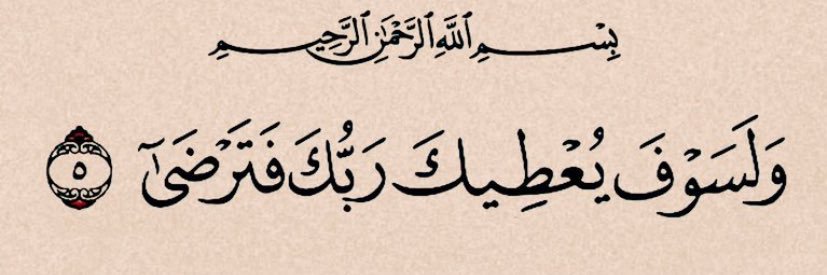 بِسْمِ ٱللَّهِ ٱلرَّحْمَٰنِ ٱلرَّحِيمِ
وَلَسَوْفَ يُعْطِيكَ رَبُّكَ فَتَرْضَىٰٓ ٥